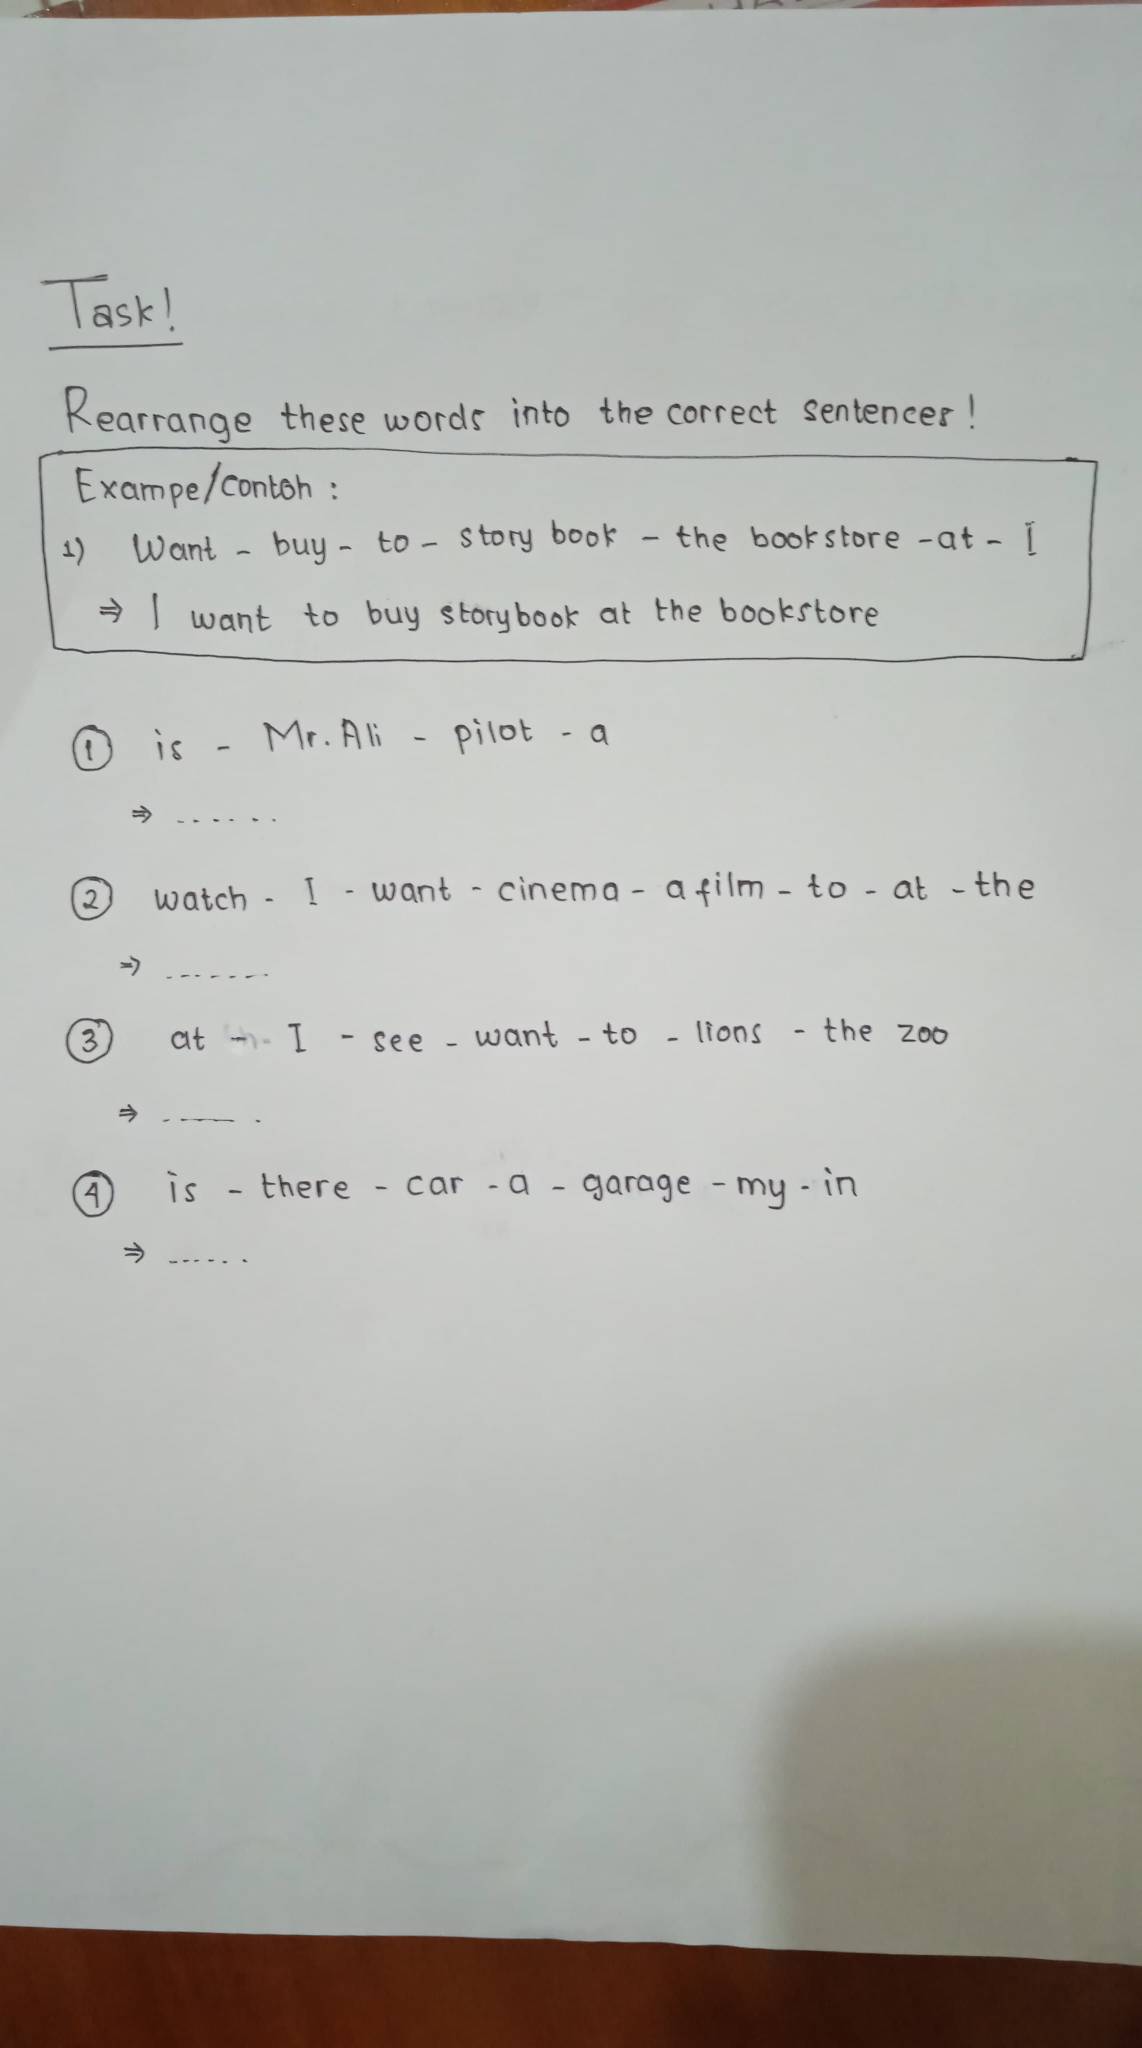 Task!
Rearrange these words into the correct sentences!
Exampe/contoh :
1) Want - buy - to - story book - the bookstore - at - I
⇒ I want to buy storybook at the bookstore
① is - Mr. Ali - pilot - a
⇒ ......
② watch - I - want - cinema - a film - to - at - the
⇒ .......
③ at - I - see - want - to - lions - the zoo
⇒ .......
④ is - there - car - a - garage - my - in
⇒ ......